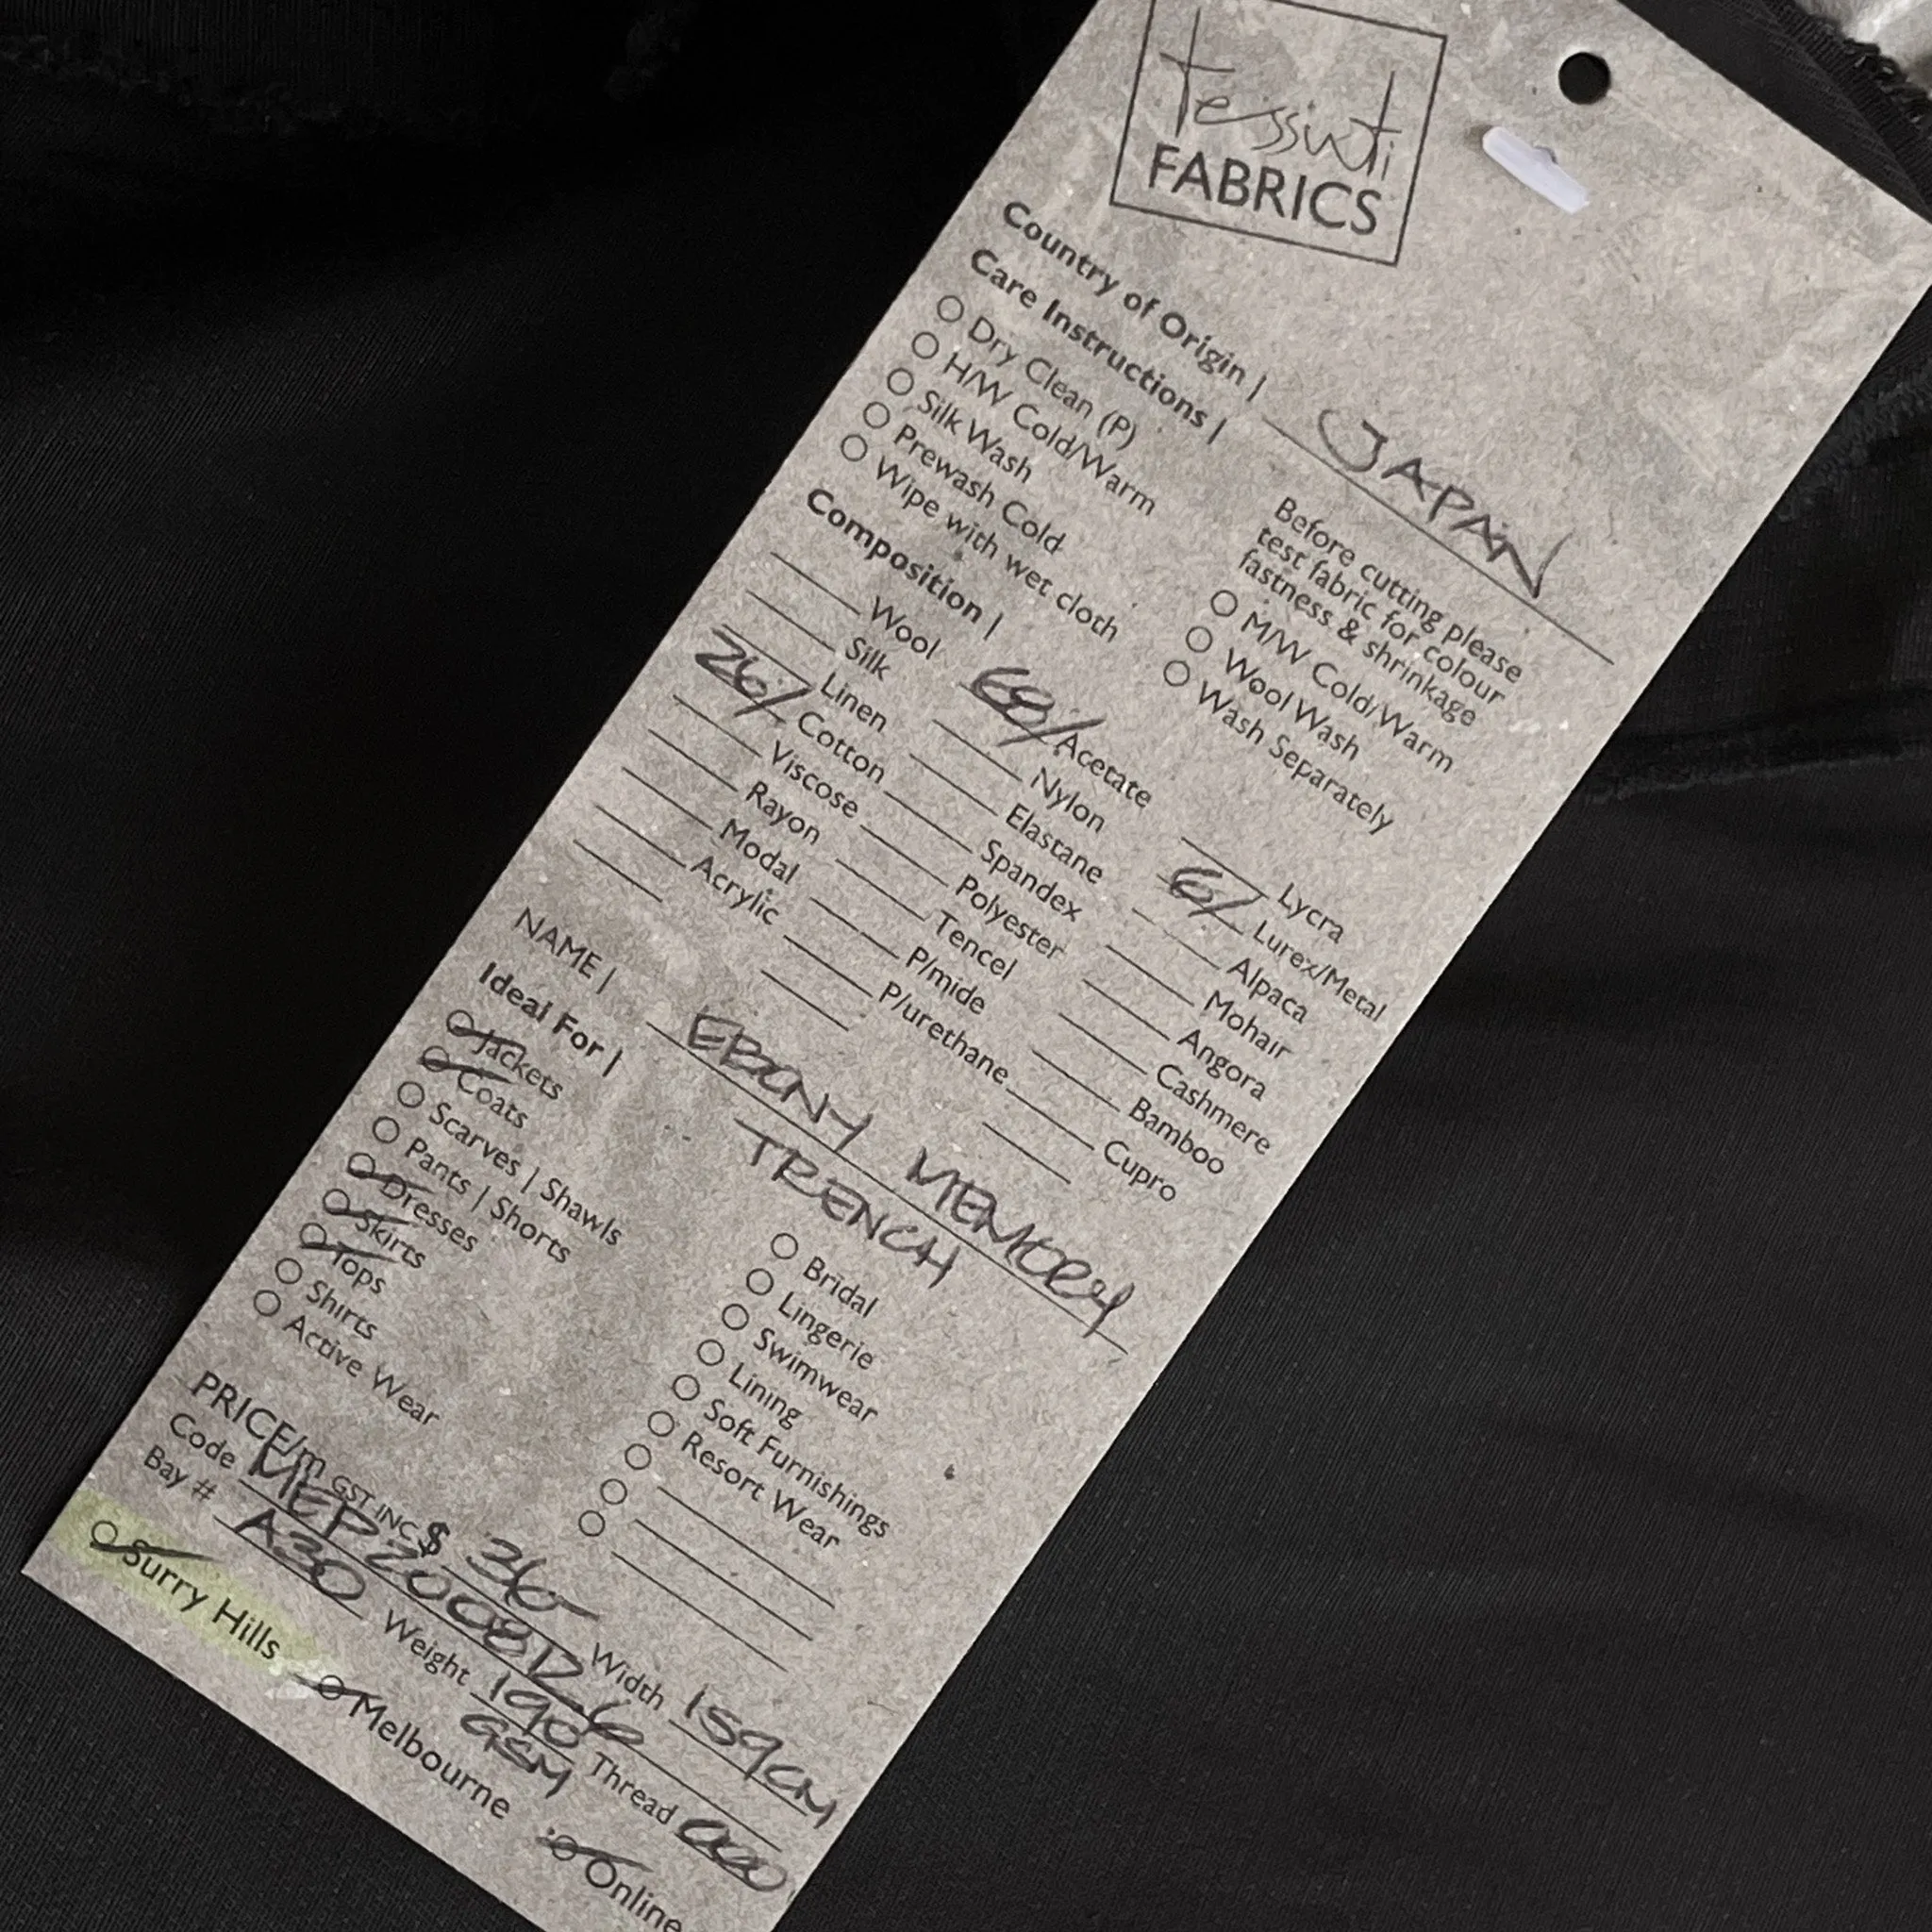 tessuti
FABRICS
Country of Origin | JAPAN
Care Instructions |
Before cutting please
test fabric for colour
fastness & shrinkage
Dry Clean (P)
H/W Cold/Warm
Silk Wash
Prewash Cold
Wipe with wet cloth
M/W Cold/Warm
Wool Wash
Wash Separately
Composition |
Wool
Silk
Linen
26/ Cotton
Viscose
Rayon
Modal
Acrylic
68/ Acetate
Nylon
Elastane
Spandex
Polyester
Tencel
P/mide
P/urethane
Lycra
6/ Lurex/Metal
Alpaca
Mohair
Angora
Cashmere
Bamboo
Cupro
NAME | EBONY MEMORY
TRENCH
Ideal For |
Jackets
Coats
Scarves | Shawls
Pants | Shorts
Dresses
Skirts
Tops
Shirts
Active Wear
Bridal
Lingerie
Swimwear
Lining
Soft Furnishings
Resort Wear
PRICE/m GST INC $ 36- Width 159CM
Code MEP200812-6
Bay # A30 Weight 190 GSM Thread 000
Surry Hills Melbourne Online